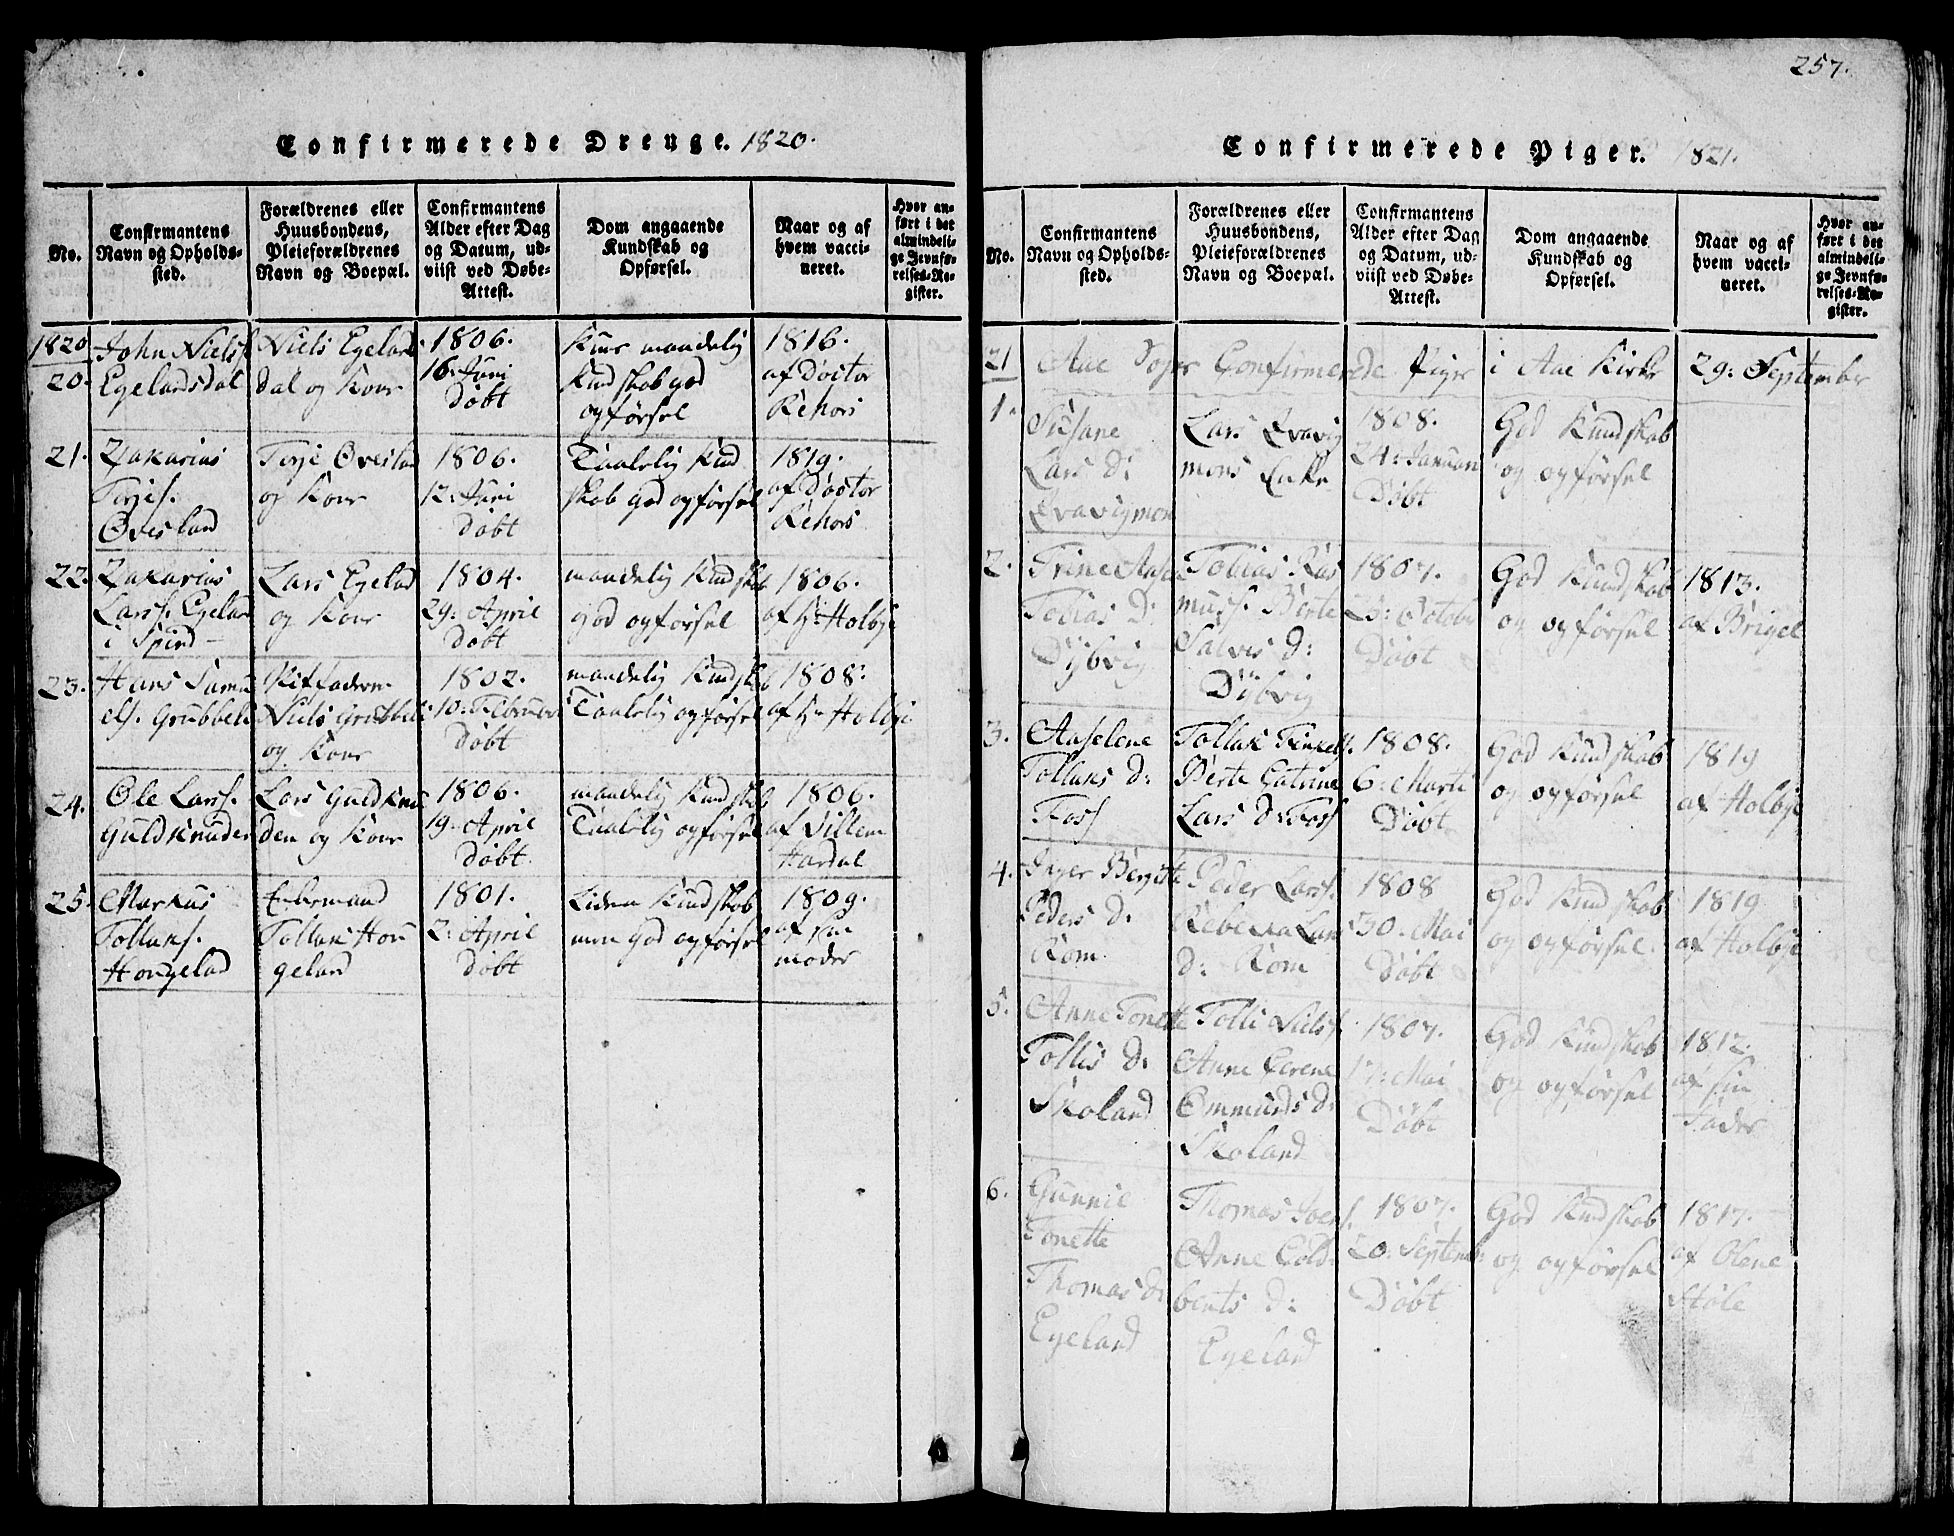 Confirmerede Drenge. 1820.
No.
Confirmantens
Navn og Opholds-
sted.
Forældrenes eller
Huusbondens,
Pleieforældrenes
Navn og Boepæl.
Confirmantens
Alder efter Dag
og Datum, ud-
viist ved Døbe-
Attest.
Dom angaaende
Kundskab og
Opførsel.
Naar og af
hvem vacci-
neret.
Hvor an-
ført i det
almindeli-
ge Jevnfø-
relses-Re-
gister.
1820
20.
John Niels.
Egelandsdal
Niels Egelands
dal og Kone
1806.
16. Juni
døbt
maadelig
Kundskab god
opførsel
1816.
af Doctor
Rehors
21.
Zakarius
Terjes.
Øvesland
Terje Øvesland
og Kone
1806.
12. Juni
døbt
Taalelig Kund
skab god opførsel
1819.
af Doctor
Rehors
22.
Zakarius
Lars. Egeland
i Spind
Lars Egelad
og Kone
1804.
29: April
døbt
maadelig Kundskab
god opførsel
1806.
af Hr Holbye
23.
Hans Samu
els. Grubbeli
Stiffaderen
Niels Grubbeli
og Kone
1802.
10: Februar
døbt
maadelig Kundskab
Taalelig opførsel
1808.
af Hr Holbye
24.
Ole Lars.
Guldknuden
Lars Guldknu
den og Kone
1806.
19. April
døbt.
maadelig Kundskab
Taalelig opførsel
1806.
af Villem
Hardal
25.
Markus
Tollaks.
Hougelad
Enkemand
Tollak Hou
geland
1801.
2: April
døbt
Liden Kundskab
men god opførsel
1809.
af sin
moder
257.
Confirmerede Piger. 1821.
No.
Confirmantens
Navn og Opholds-
sted.
Forældrenes eller
Huusbondens,
Pleieforældrenes
Navn og Boepæl.
Confirmantens
Alder efter Dag
og Datum, ud-
viist ved Døbe-
Attest.
Dom angaaende
Kundskab og
Opførsel.
Naar og af
hvem vacci-
neret.
Hvor an-
ført i det
almindeli-
ge Jevnfø-
relses-Re-
gister.
21 Aae Sogns Confirmerede Piger i Aae Kirke 29: September
1.
Susane
Lars d:
Qvavigmon
Lars Qvavig
mons Enke
1808.
24: Januari
Døbt
God Kundskab
og opførsel
2.
Trine
Tobias D:
Dybvig
Tobias Ras
mus. Berte
Salves d:
Dybvig
1807.
25: October
Døbt
God Kundskab
og opførsel
1813.
af Brigel
3.
Aaselene
Tollaks d:
Foss
Tollak Tinkels.
Berte Catrine
Lars d: Foss
1808.
6: Marti
Døbt
God Kundskab
og opførsel
1819
af Holbye
4.
Inger Bergitte
Peders d:
Rom
Peder Lars.
Rebekka Lars
d: Rom
1808
30. Mai
Døbt
God Kundskab
og opførsel.
1819
af Holbye
5.
Anne Tonette
Tollis d:
Skoland
Tolli Niels.
Anne Serene
Ommunds d:
Skoland
1807.
17: Mai
Døbt
God Kundskab
og opførsel
1812.
af sin
Fader
6.
Gunnie
Tonette
Thomas d:
Egeland
Thomas Joens.
Anne Cold
bents d:
Egeland
1807.
20. September
Døbt
God Kundskab
og opførsel
1817.
af Olene
Støle